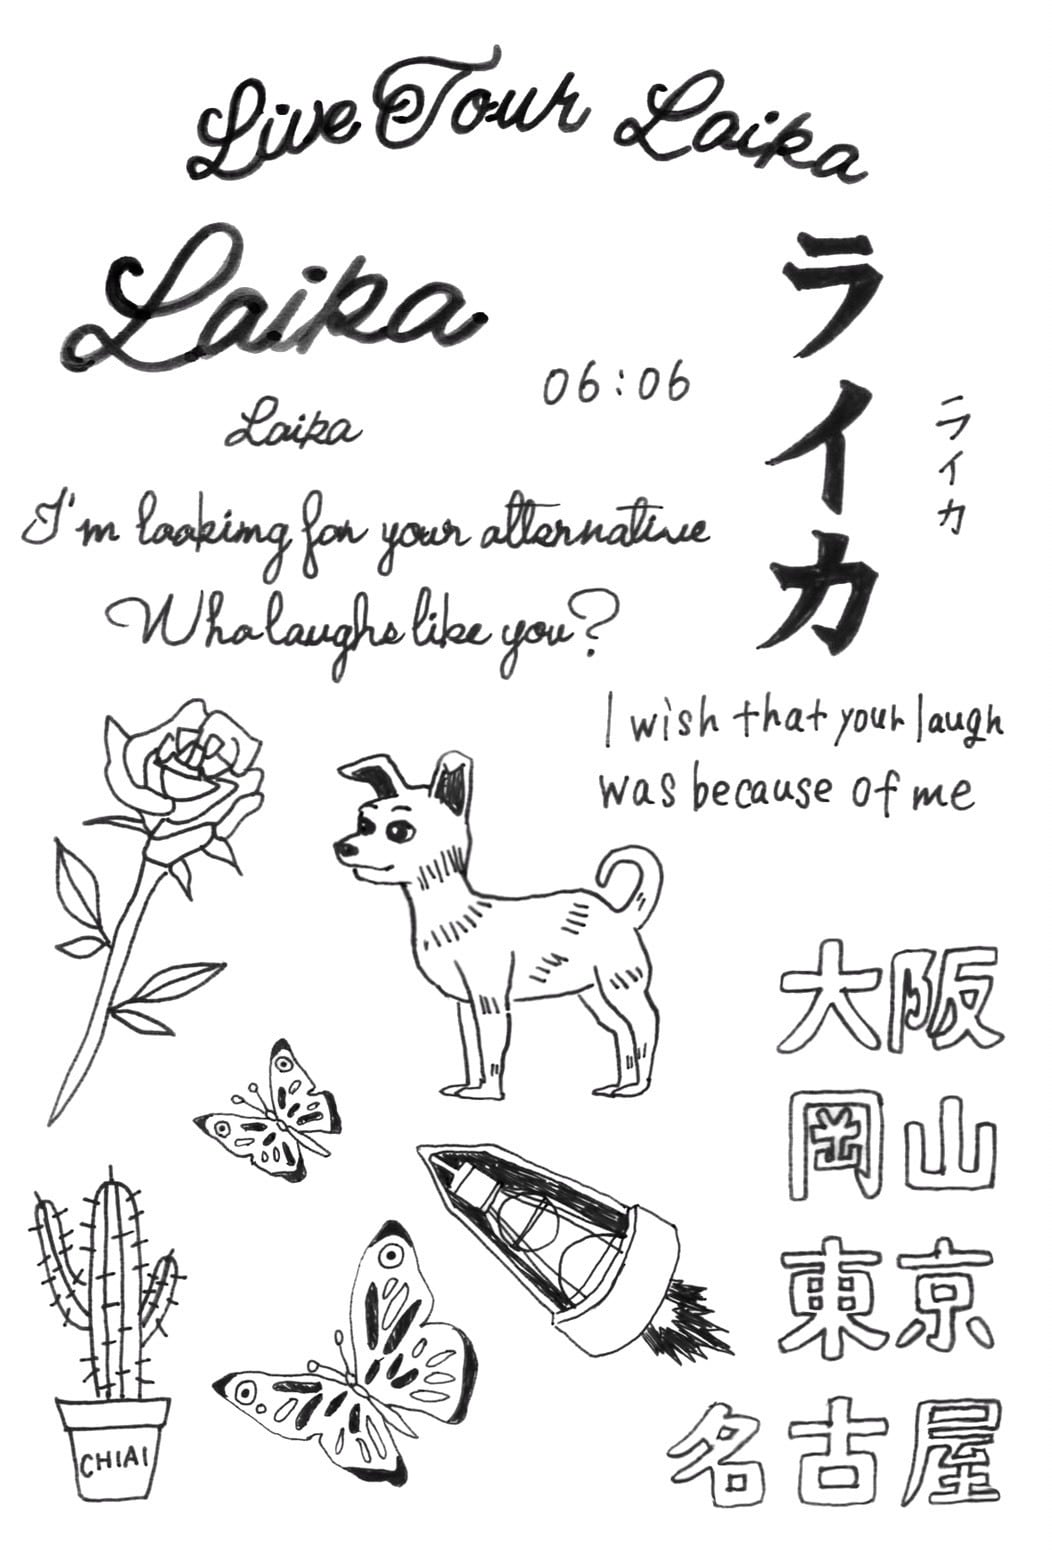 Live Tour Laika
Laika
ライカ
06:06
ライカ
Laika
I'm looking for your alternative
Who laughs like you?
I wish that your laugh
was because of me
大阪
岡山
東京
名古屋
CHIAI